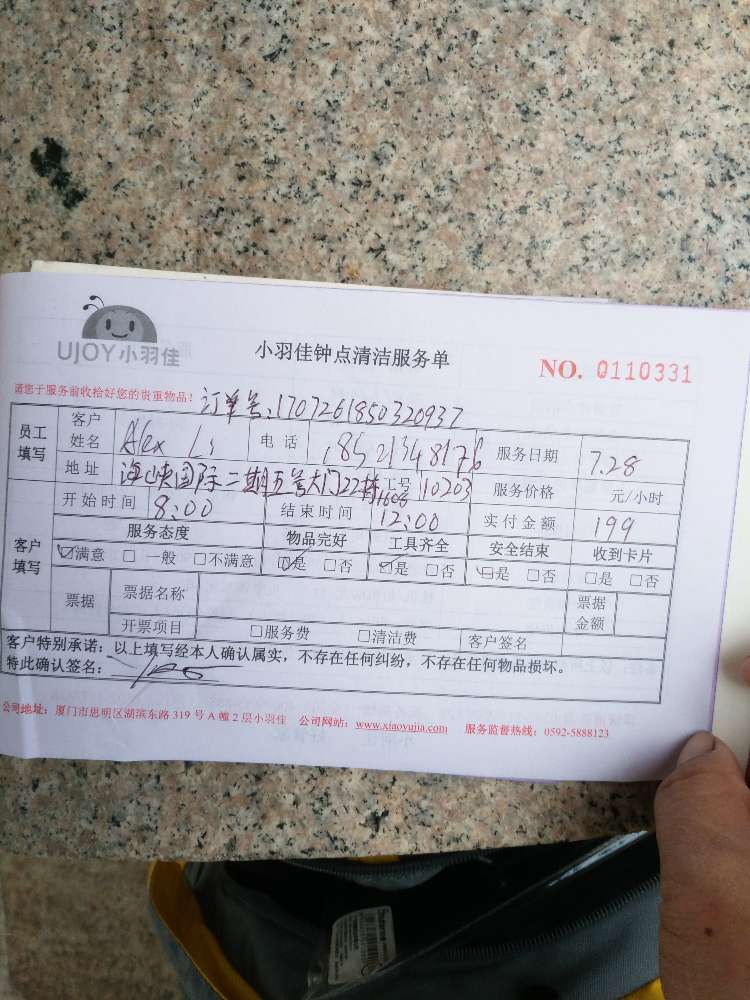 UJOY小羽佳
小羽佳钟点清洁服务单
NO. 0110331
请您于服务前收拾好您的贵重物品！
订单号:1707261850320937
员工填写
客户姓名 Alex Li 电话 18521348176 服务日期 7.28
地址 海峡国际二期五号大门22栋1603 工号 10203 服务价格 元/小时
开始时间 8:00 结束时间 12:00 实付金额 199
客户填写
服务态度 物品完好 工具齐全 安全结束 收到卡片
☑满意 □一般 □不满意 ☑是 □否 ☑是 □否 ☑是 □否 □是 □否
票据 票据名称 票据金额
开票项目 □服务费 □清洁费 客户签名
客户特别承诺：以上填写经本人确认属实，不存在任何纠纷，不存在任何物品损坏。
特此确认签名：
公司地址：厦门市思明区湖滨东路 319 号 A 幢 2 层小羽佳 公司网站：www.xiaoyujia.com 服务监督热线：0592-5888123